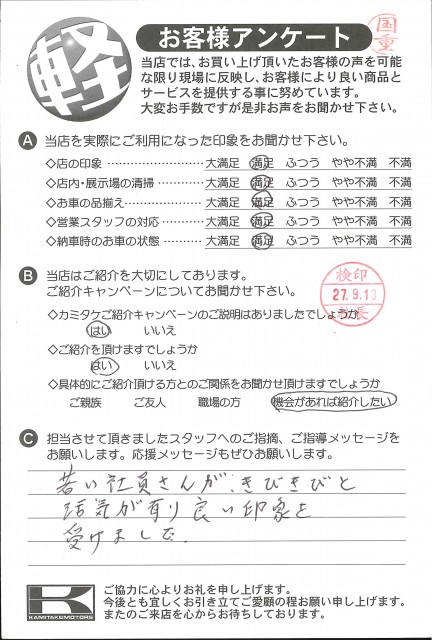 軽
お客様アンケート
国重
当店では、お買い上げ頂いたお客様の声を可能
な限り現場に反映し、お客様により良い商品と
サービスを提供する事に努めています。
大変お手数ですが是非お声をお聞かせ下さい。
A 当店を実際にご利用になった印象をお聞かせ下さい。
◇店の印象 大満足 満足 ふつう やや不満 不満
◇店内・展示場の清掃 大満足 満足 ふつう やや不満 不満
◇お車の品揃え 大満足 満足 ふつう やや不満 不満
◇営業スタッフの対応 大満足 満足 ふつう やや不満 不満
◇納車時のお車の状態 大満足 満足 ふつう やや不満 不満
B 当店はご紹介を大切にしてあります。
ご紹介キャンペーンについてお聞かせ下さい。
検印
27.9.13
長
◇カミタケご紹介キャンペーンのご説明はありましたでしょうか
はい いいえ
◇ご紹介を頂けますでしょうか
はい いいえ
◇具体的にご紹介頂ける方とのご関係をお聞かせ頂けますでしょうか
ご親族 ご友人 職場の方 機会があれば紹介したい
C 担当させて頂きましたスタッフへのご指摘、ご指導メッセージを
お願いします。応援メッセージもぜひお願いします。
若い社員さんが、きびきびと
活気が有り良い印象を
受けました。
K
KAMITAKEMOTORS
ご協力に心よりお礼を申し上げます。
今後とも宜しくお引き立てご愛顧の程お願い申し上げます。
またのご来店を心からお待ちしております。